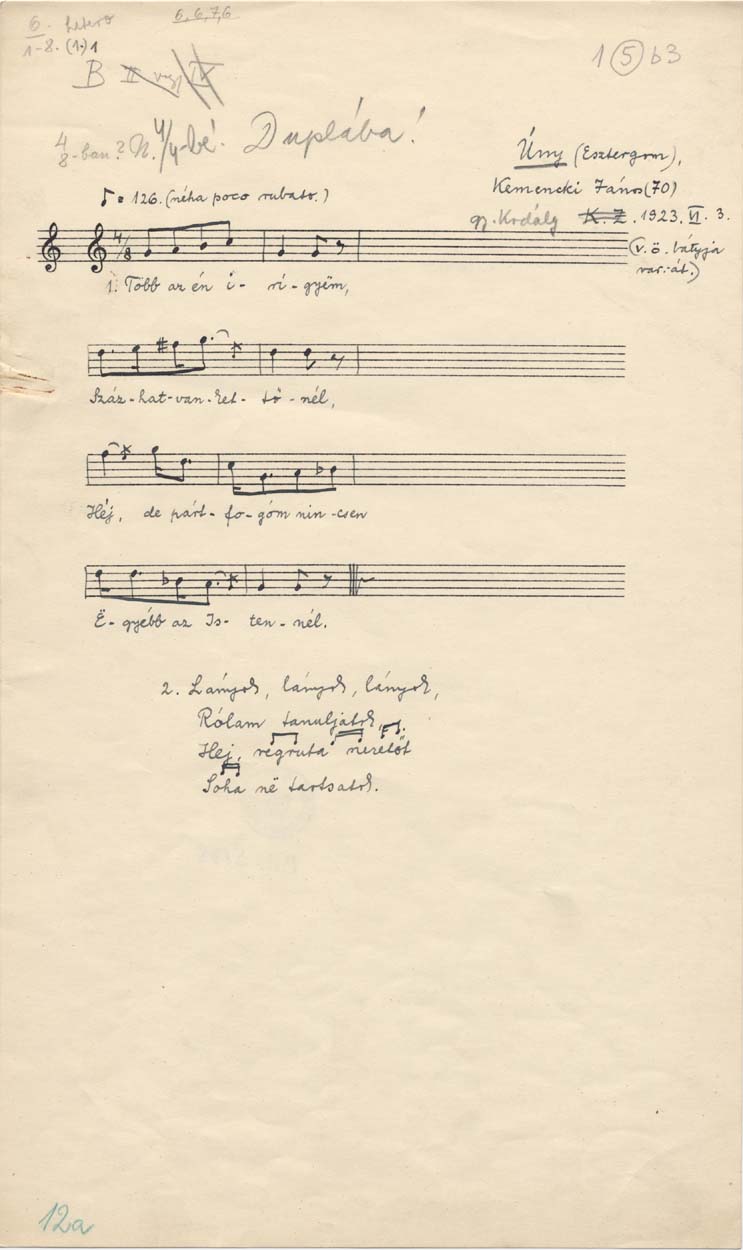 6. hetero
1-8. (1.) 1
6, 6, 7, 6
B II vagy IV
1 (5) b3
4/8-ban? N. 4/4-bé! Duplába!
Úny (Esztergom),
♪ = 126. (néha poco rubato.)
Kemencki János (70)
gy. Kodály K. Z. 1923. VI. 3.
(v. ö. bátyja
var.-át.)
4/8
1. Több az én i - ri - gyëm,
Száz - hat - van - het - tö - nél,
Héj, de párt - fo - góm nin - csen
Ë - gyébb az Is - ten - nél.
2. Lányok, lányok, lányok,
Rólam tanuljatok,
Héj, regruta szeretőt
Soha në tartsatok.
12a